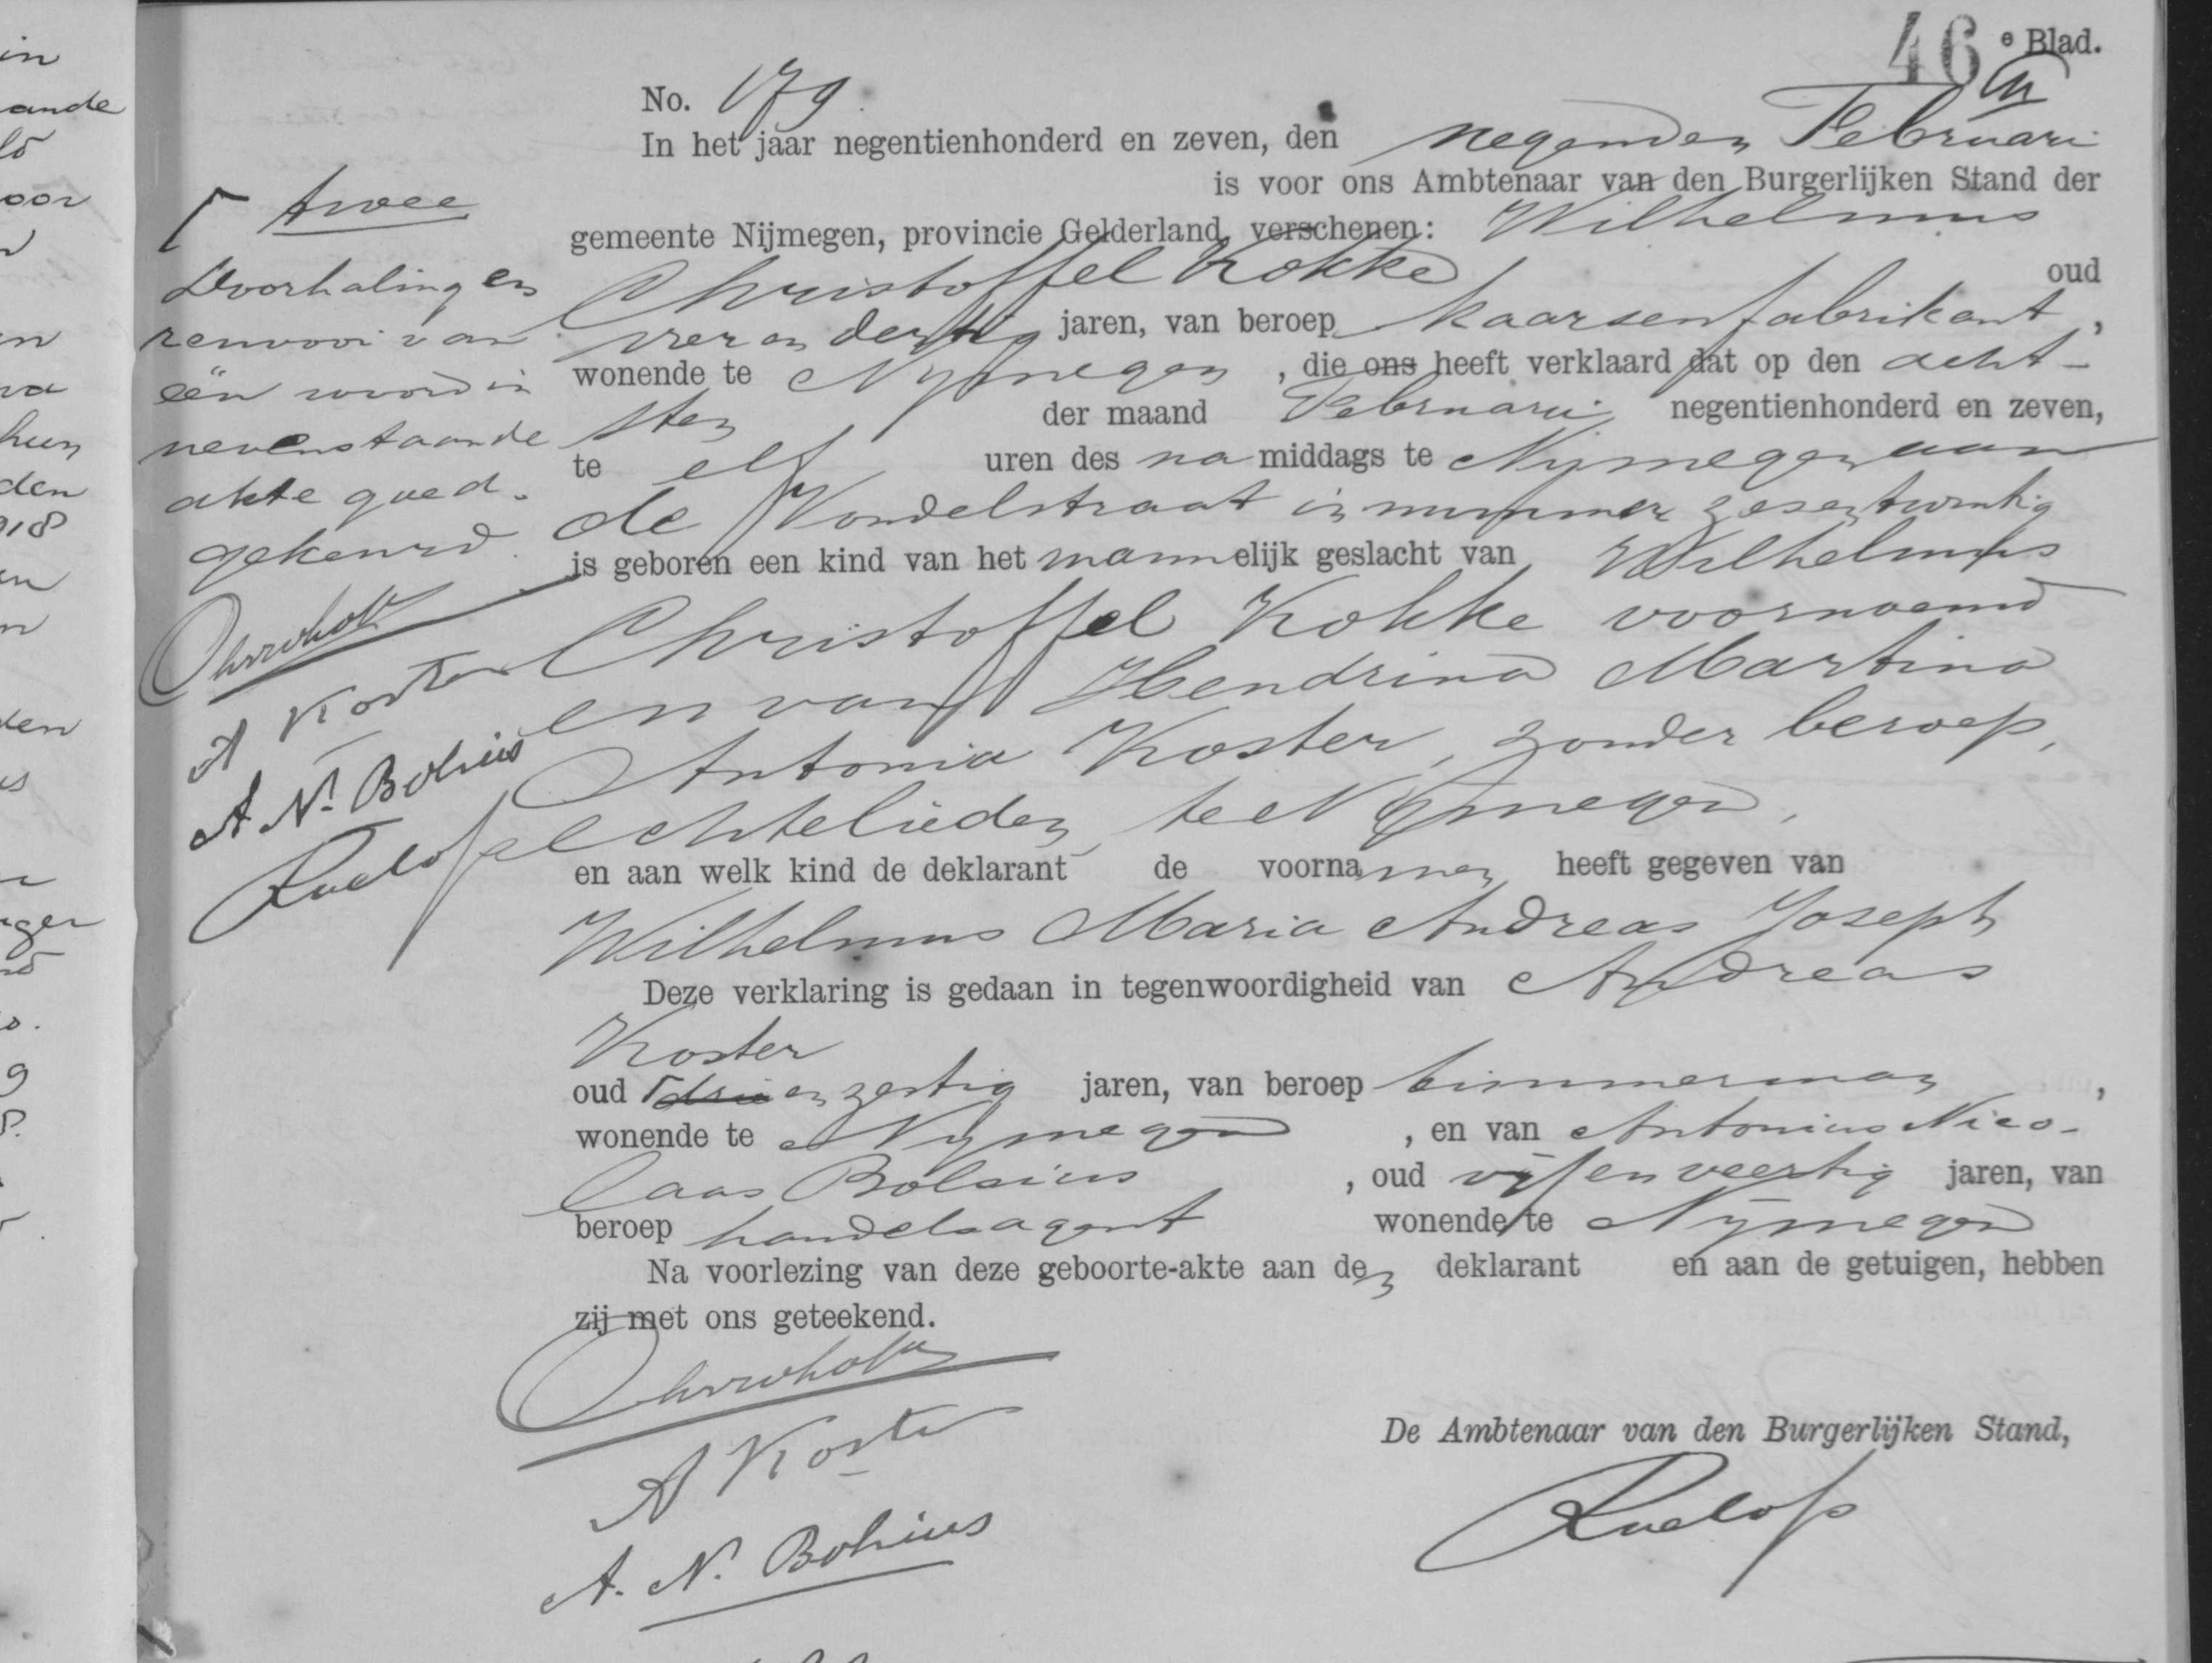 46e Blad.
No. 179
In het jaar negentienhonderd en zeven, den negenden Februari
is voor ons Ambtenaar van den Burgerlijken Stand der
gemeente Nijmegen, provincie Gelderland, verschenen: Wilhelmus
Christoffel Kokke oud
vier en dertig jaren, van beroep kaarsenfabrikant,
wonende te Nijmegen, die ons heeft verklaard dat op den acht-
sten der maand Februari negentienhonderd en zeven,
te elf uren des na middags te Nijmegen aan
de Vondelstraat in nummer zesentwintig
is geboren een kind van het mannelijk geslacht van Wilhelmus
Christoffel Kokke voornoemd
en van Hendrina Martina
Antonia Koster, zonder beroep,
echtelieden te Nijmegen,
en aan welk kind de deklarant de voornamen heeft gegeven van
Wilhelmus Maria Andreas Joseph
Deze verklaring is gedaan in tegenwoordigheid van Andreas
Koster
oud drie en zestig jaren, van beroep timmerman,
wonende te Nijmegen, en van Antonius Nico-
laas Bolsius, oud vijf en veertig jaren, van
beroep handelsagent wonende te Nijmegen
Na voorlezing van deze geboorte-akte aan den deklarant en aan de getuigen, hebben
zij met ons geteekend.
A Koster
A. N. Bolsius
De Ambtenaar van den Burgerlijken Stand,
twee
Doorhalingen
renvooi van
één woord in
nevenstaande
akte goed-
gekeurd.
A Koster
A. N. Bolsius
in
ande
oor
hun
den
918
den